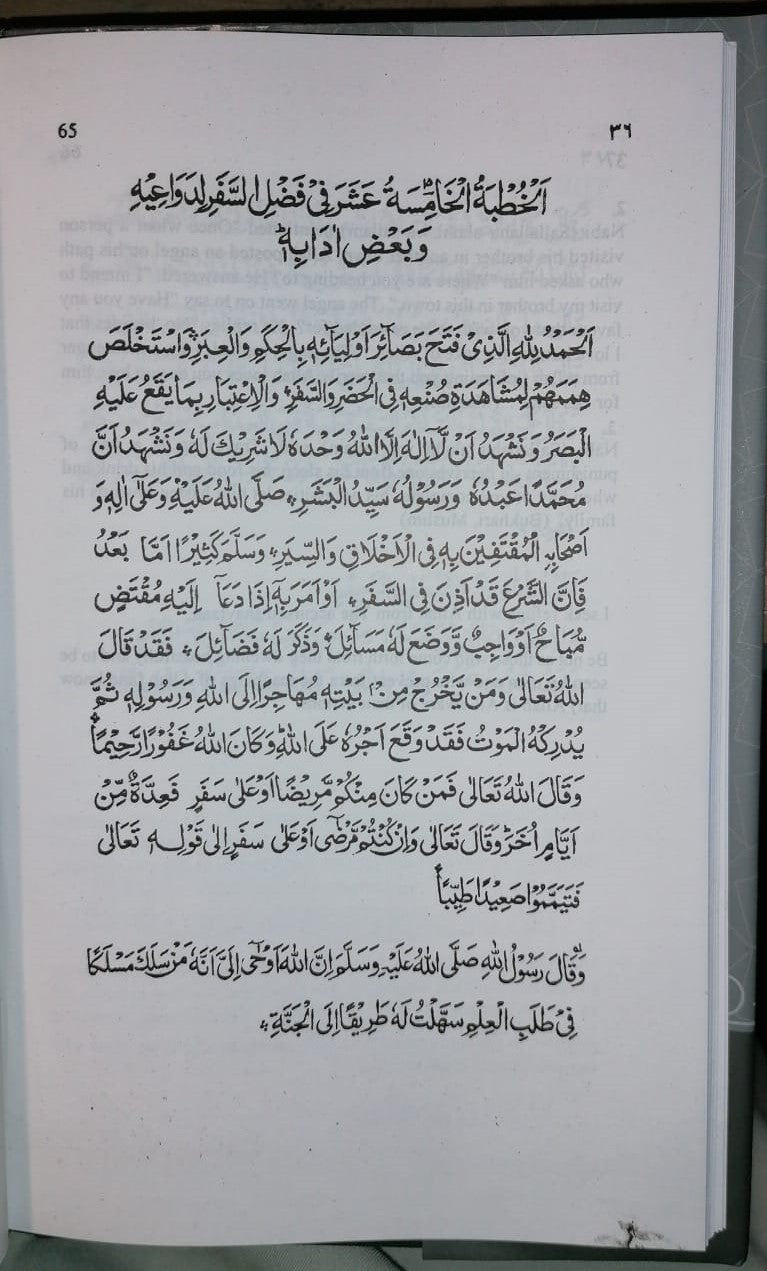 65
٣٦
اَلْخُطْبَةُ الْخَامِسَةُ عَشَرَ فِيْ فَضْلِ السَّفَرِ لِدَوَاعِيْهِ
وَبَعْضِ اٰدَابِهٖ ؕ
اَلْحَمْدُ لِلّٰهِ الَّذِيْ فَتَحَ بَصَآئِرَ اَوْلِيَآئِهٖ بِالْحِكَمِ وَالْعِبَرِ وَاسْتَخْلَصَ
هِمَمَهُمْ لِمُشَاهَدَةِ صُنْعِهٖ فِي الْحَضَرِ وَالسَّفَرِ ۞ وَالْاِعْتِبَارِ بِمَا يَقَعُ عَلَيْهِ
الْبَصَرُ وَنَشْهَدُ اَنْ لَّآ اِلٰهَ اِلَّا اللّٰهُ وَحْدَهٗ لَا شَرِيْكَ لَهٗ وَنَشْهَدُ اَنَّ
مُحَمَّدًا عَبْدُهٗ وَرَسُوْلُهٗ سَيِّدُ الْبَشَرِ ۞ صَلَّى اللّٰهُ عَلَيْهِ وَعَلٰٓى اٰلِهٖ وَ
اَصْحَابِهِ الْمُقْتَفِيْنَ بِهٖ فِي الْاَخْلَاقِ وَالسِّيَرِ ۞ وَسَلَّمَ كَثِيْرًا اَمَّا بَعْدُ
فَاِنَّ الشَّرْعَ قَدْ اَذِنَ فِي السَّفَرِ ۞ اَوْ اَمَرَ بِهٖٓ اِذَا دَعَآ اِلَيْهِ مُقْتَضٍ
مُّبَاحٌ اَوْ وَاجِبٌ وَّوَضَعَ لَهٗ مَسَآئِلَ ۞ وَذَكَرَ لَهٗ فَضَآئِلَ ۞ فَقَدْ قَالَ
اللّٰهُ تَعَالٰى وَمَنْ يَّخْرُجْ مِنْۢ بَيْتِهٖ مُهَاجِرًا اِلَى اللّٰهِ وَرَسُوْلِهٖ ثُمَّ
يُدْرِكْهُ الْمَوْتُ فَقَدْ وَقَعَ اَجْرُهٗ عَلَى اللّٰهِ ؕ وَكَانَ اللّٰهُ غَفُوْرًا رَّحِيْمًا
وَقَالَ اللّٰهُ تَعَالٰى فَمَنْ كَانَ مِنْكُمْ مَّرِيْضًا اَوْ عَلٰى سَفَرٍ فَعِدَّةٌ مِّنْ
اَيَّامٍ اُخَرَ ؕ وَقَالَ تَعَالٰى وَاِنْ كُنْتُمْ مَّرْضٰٓى اَوْ عَلٰى سَفَرٍ اِلٰى قَوْلِهٖ تَعَالٰى
فَتَيَمَّمُوْا صَعِيْدًا طَيِّبًا
وَقَالَ رَسُوْلُ اللّٰهِ صَلَّى اللّٰهُ عَلَيْهِ وَسَلَّمَ اِنَّ اللّٰهَ اَوْحٰٓى اِلَيَّ اَنَّهٗ مَنْ سَلَكَ مَسْلَكًا
فِيْ طَلَبِ الْعِلْمِ سَهَّلْتُ لَهٗ طَرِيْقًا اِلَى الْجَنَّةِ ۞